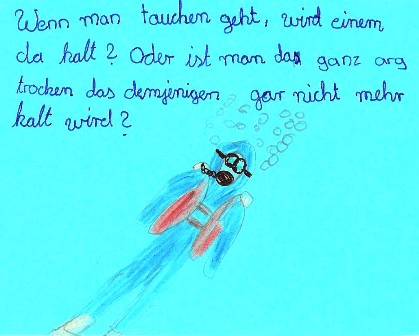 Wenn man tauchen geht, wird einem
da kalt? Oder ist man da ganz arg
trocken das demjenigen gar nicht mehr
kalt wird?